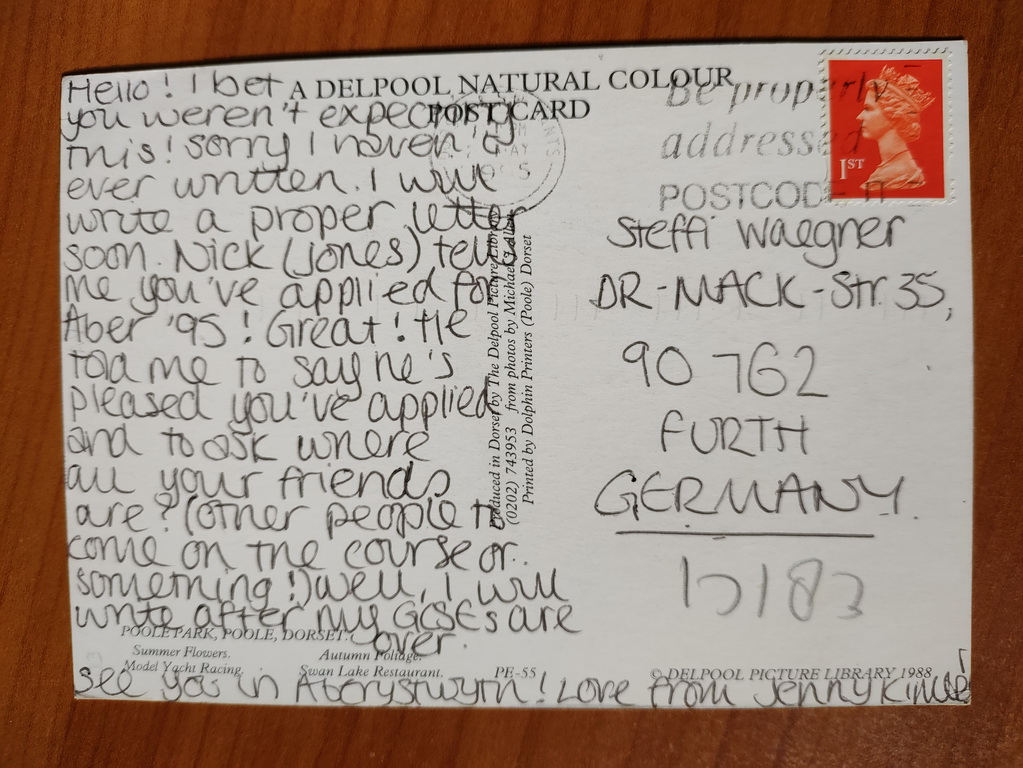 A DELPOOL NATURAL COLOUR
POSTCARD
Hello! I bet
you weren't expecting
this! Sorry I haven't
ever written. I will
write a proper letter
soon. Nick (Jones) tells
me you've applied for
Aber '95! Great! He
told me to say he's
pleased you've applied
and to ask where
all your friends
are? (Other people to
come on the course or..
something!) Well, I will
write after my GCSEs are
over.
See you in Aberystwyth! Love from Jenny
Produced in Dorset by The Delpool Picture Library
(0202) 743953 from photos by Michael Allen
Printed by Dolphin Printers (Poole) Dorset
Be properly
addressed
POSTCODE it
1ST
MAY
Steffi Waegner
DR-MACK-Str. 35,
90 762
FURTH
GERMANY
POOLE PARK, POOLE, DORSET.
Summer Flowers. Autumn Foliage.
Model Yacht Racing. Swan Lake Restaurant. PE-55 © DELPOOL PICTURE LIBRARY 1988